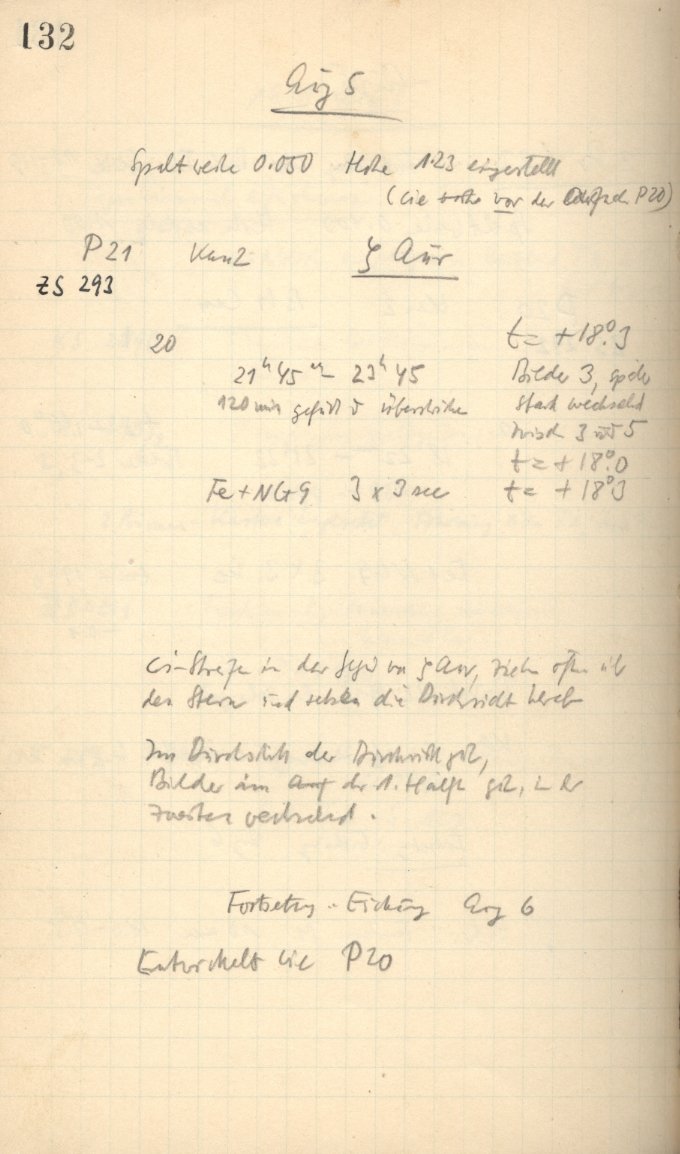 132
Aug 5
Spaltweite 0.050 Höhe 1.23 eingestellt
(wie vor der P20)
P21 Kam2 ζ Aur
ZS 293
20 t = +18°.3
21ʰ 45ᵐ – 23ʰ 45 Bilder 3, später
120 min geführt stark wechselnd
zwisch 3 und 5
t = +18°.0
Fe + NG9 3 x 3 sec t = +18°.3
Ci-Streifen in der Gegend von ζ Aur, ziehen öfter über
den Stern und setzen die Durchsicht herab
Im Durchschnitt der Durchsicht gut,
Bilder in der 1. Hälfte gut, in der
zweiten wechselnd.
Fortsetzung Eichung Aug 6
Entwickelt wie P20